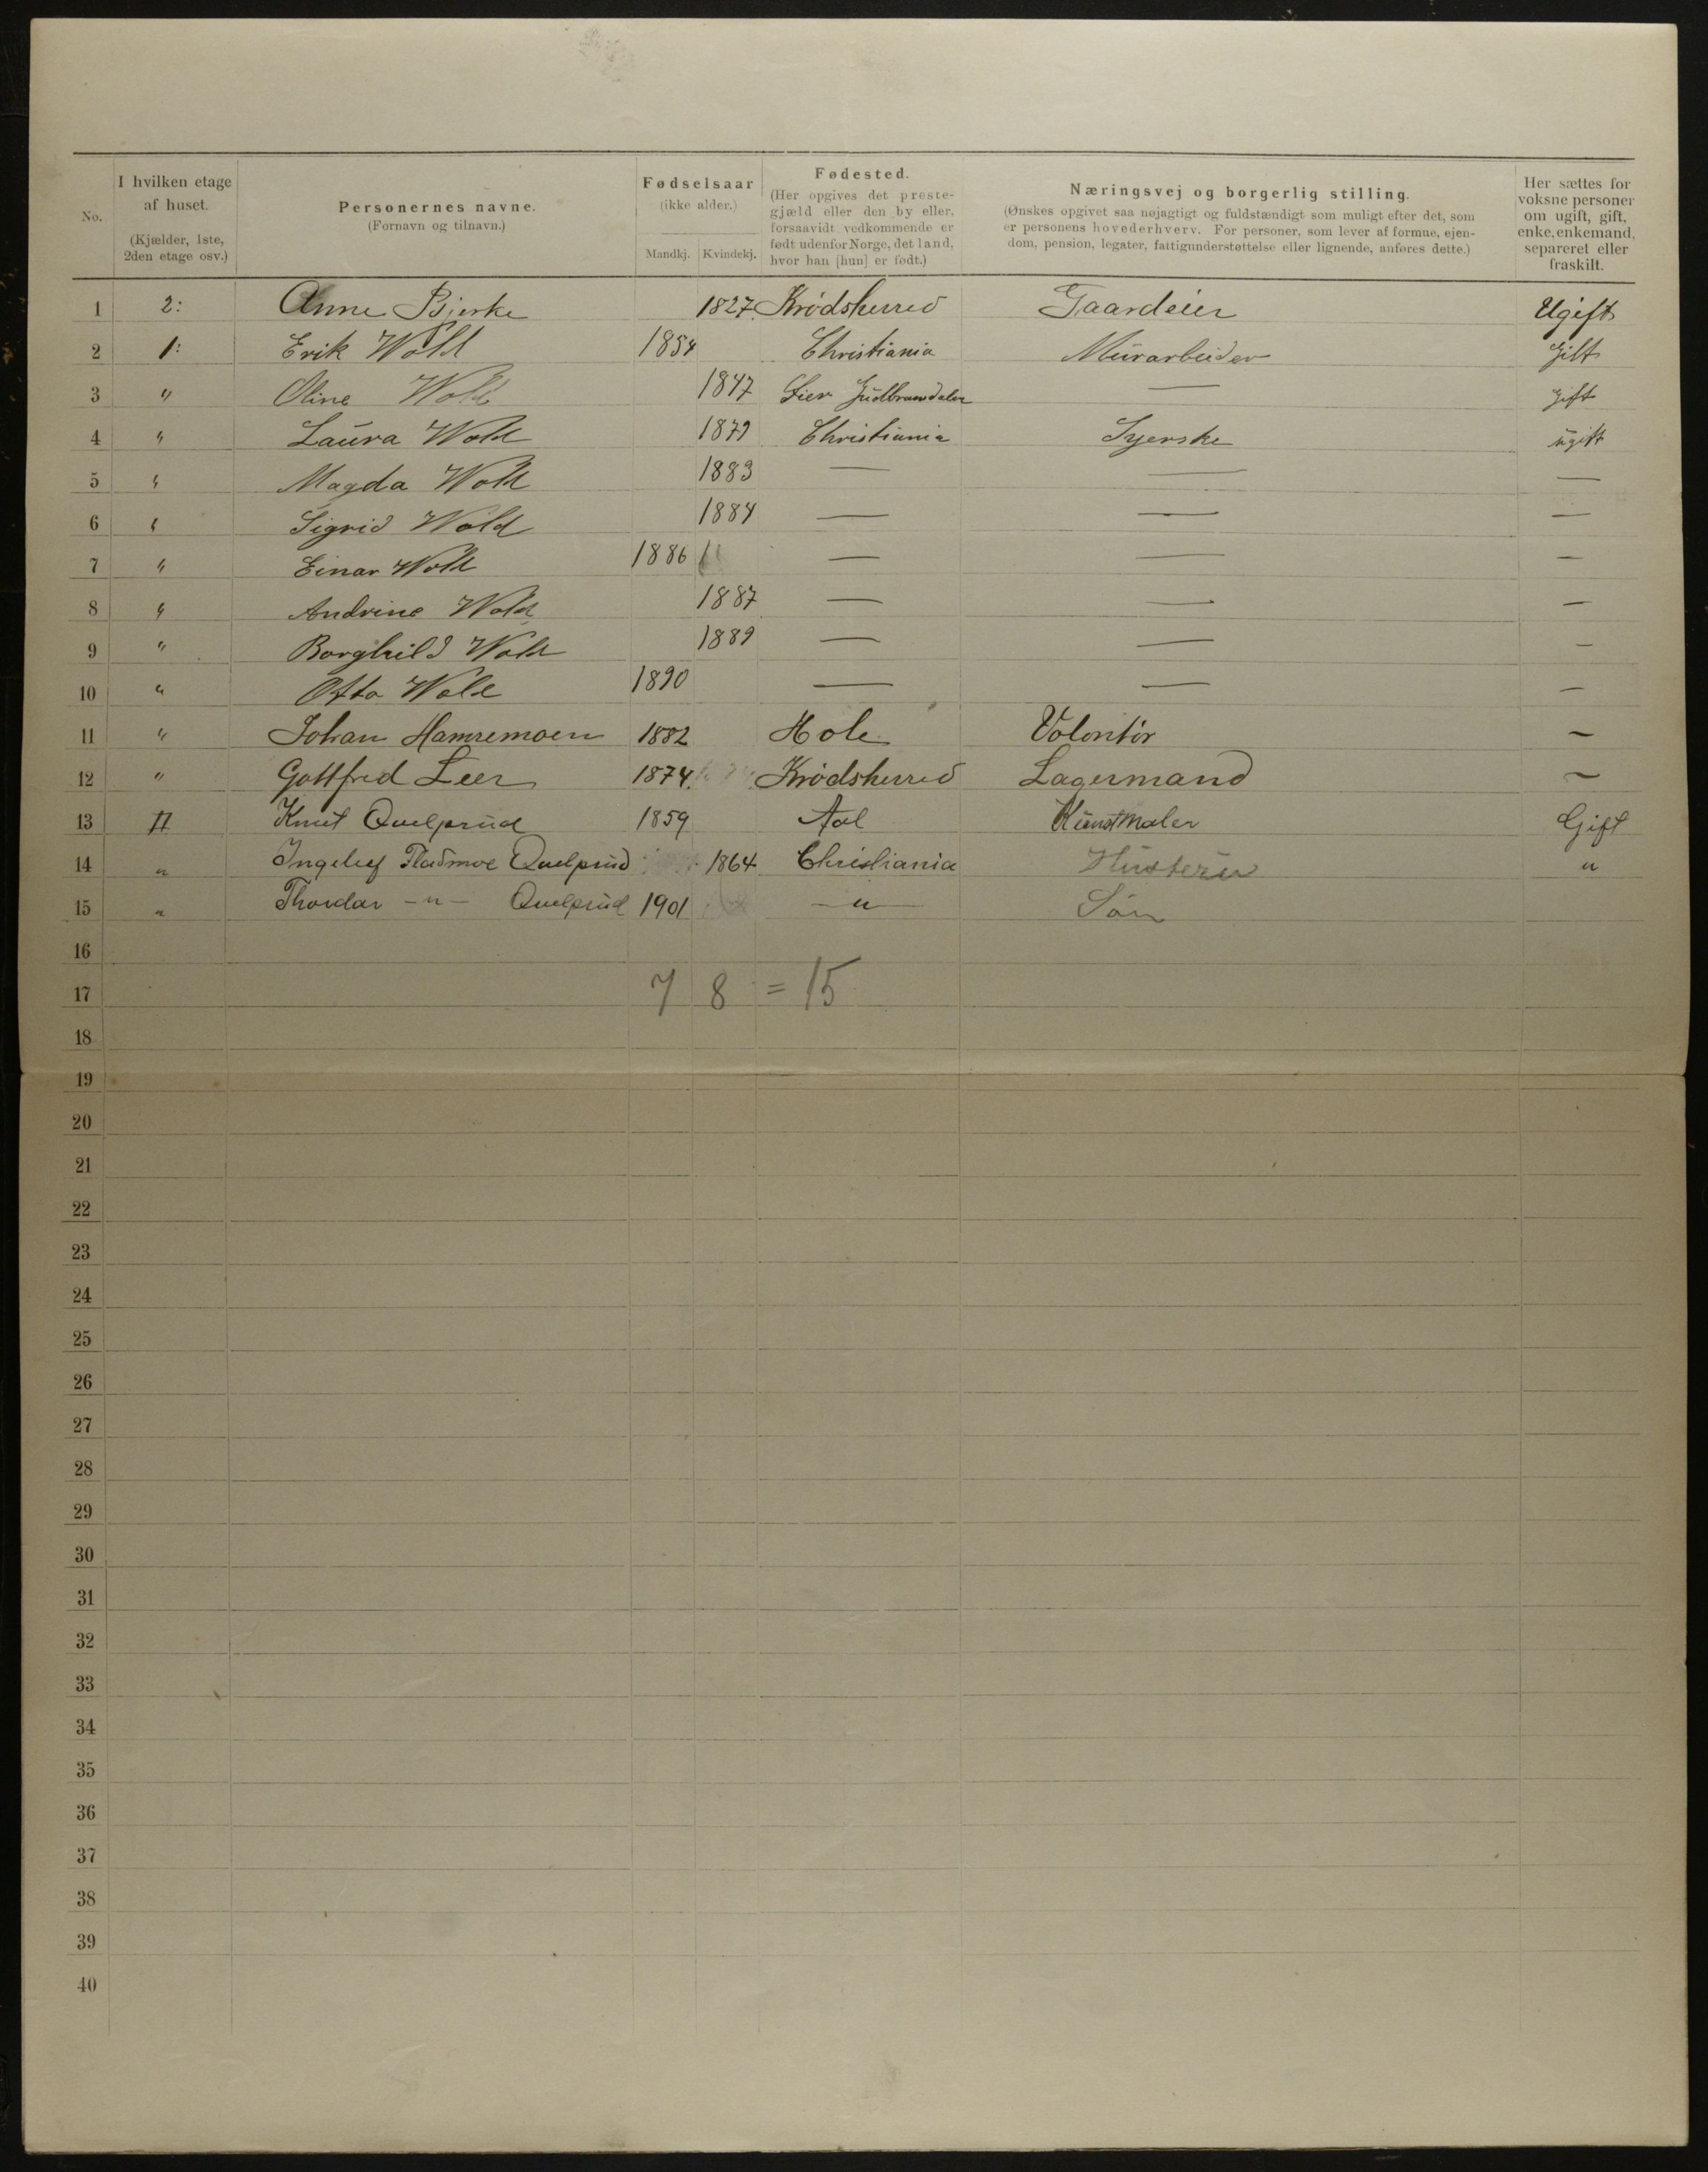 No.
I hvilken etage af huset. (Kjælder, 1ste, 2den etage osv.)
Personernes navne. (Fornavn og tilnavn.)
Fødselsaar (ikke alder.) Mandkj. Kvindekj.
Fødested. (Her opgives det prestegjæld eller den by eller, forsaavidt vedkommende er født udenfor Norge, det land, hvor han [hun] er født.)
Næringsvej og borgerlig stilling.
(Ønskes opgivet saa nøjagtigt og fuldstændigt som muligt efter det, som
er personens hovederhverv. For personer, som lever af formue, ejen-
dom, pension, legater, fattigunderstøttelse eller lignende, anføres dette.)
Her sættes for voksne personer om ugift, gift, enke, enkemand, separeret eller fraskilt.
1 2: Anne Bjerke 1827 Krödsherred Gaardeier Ugift
2 1: Erik Wold 1854 Christiania Murarbeider Gift
3 " Oline Wold 1847 Gudbrandsdalen — gift
4 " Laura Wold 1879 Christiania Syerske ugift
5 " Magda Wold 1883 — — —
6 " Sigrid Wold 1884 — — —
7 " Einar Wold 1886 — — —
8 " Andrine Wold 1887 — — —
9 " Borghild Wold 1889 — — —
10 " Otto Wold 1890 — — —
11 " Johan Hamremoen 1882 Hole Volontör —
12 " Gottfred Leer 1874. Krödsherred Lagermand —
13 II Knut Quelprud 1859 Aal Kunstmaler Gift
14 " Quelprud 1864 Christiania Hustru "
15 " Thordar -"- Quelprud 1901 -"- Sön
16
17 7 8 = 15
18
19
20
21
22
23
24
25
26
27
28
29
30
31
32
33
34
35
36
37
38
39
40